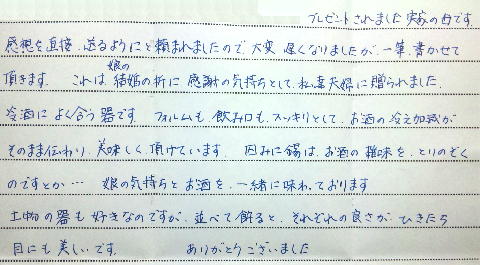 プレゼントされました実家の母です。
感想を直接、送るようにと頼まれましたので、大変遅くなりましたが、一筆、書かせて
頂きます。これは、娘の結婚の折に感謝の気持ちとして、私達夫婦に贈られました。
冷酒によく合う器です。フォルムも、飲み口も、スッキリとして、お酒の冷え加減が
そのまま伝わり、美味しく頂けています。因みに錫は、お酒の雑味を、とりのぞく
のですとか… 娘の気持ちとお酒を、一緒に味わっております
土物の器も好きなのですが、並べて飾ると、それぞれの良さが、ひきたち
目にも美しいです。ありがとうございました